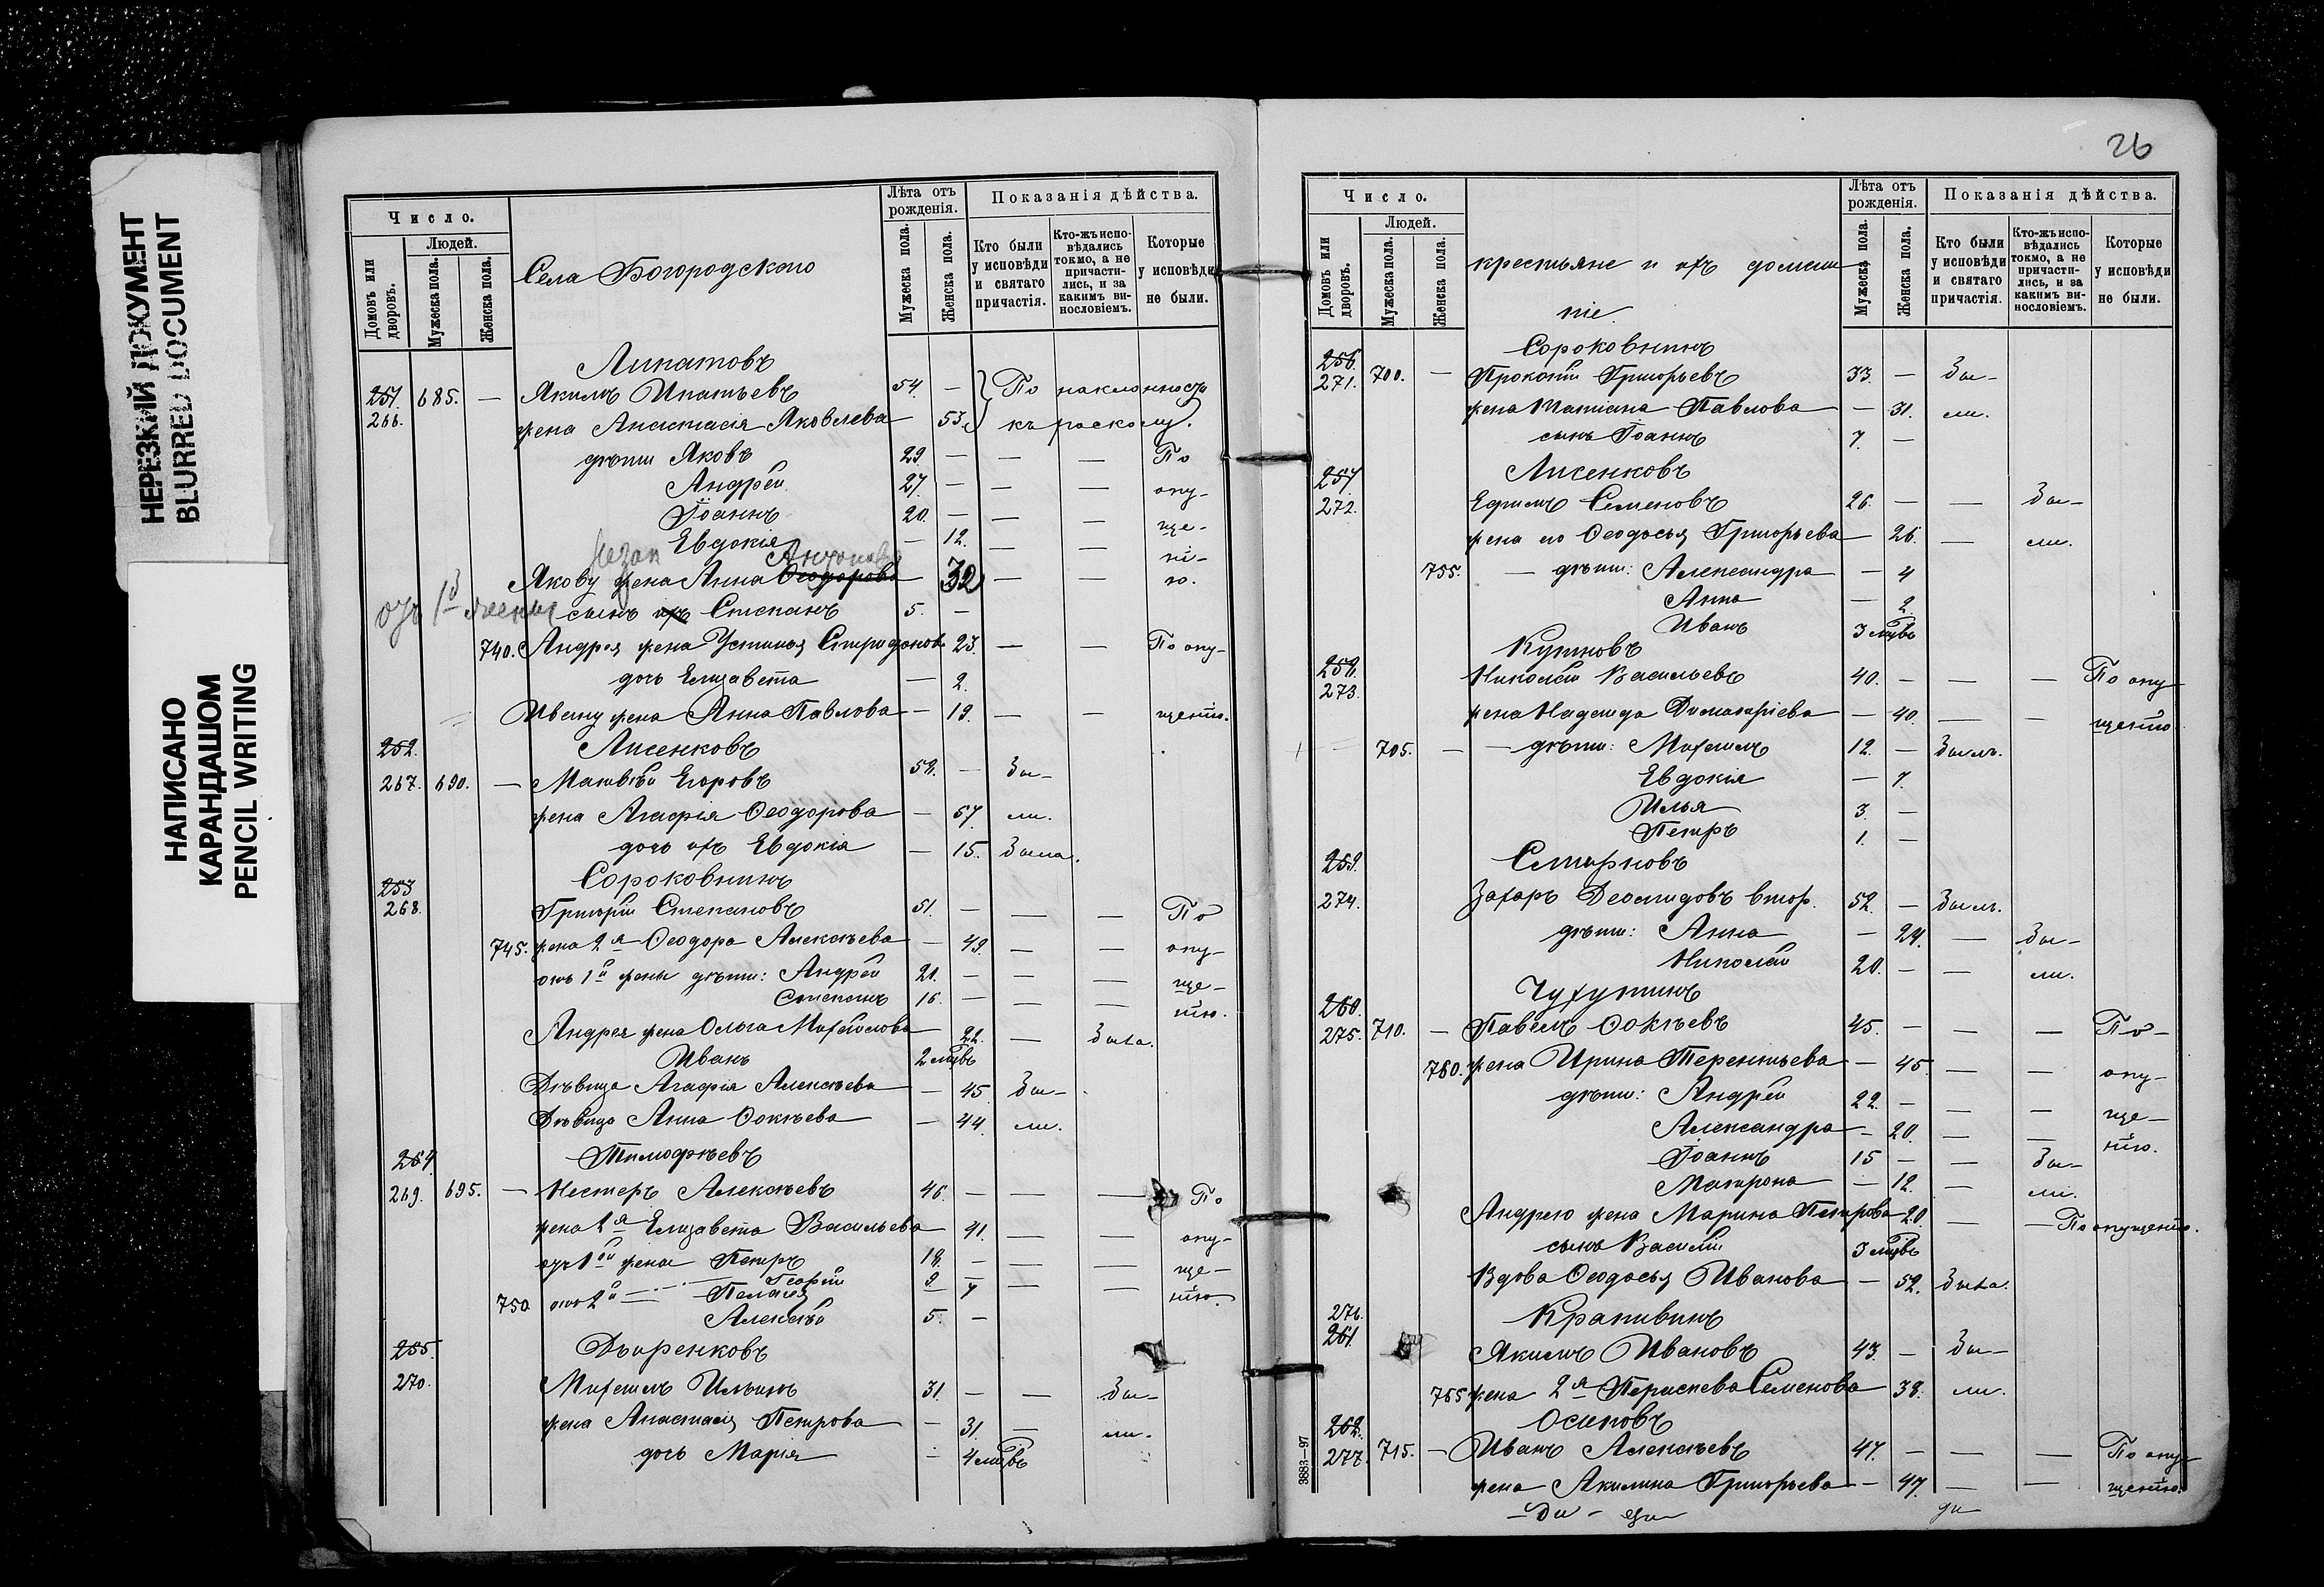 НЕРЕЗКИЙ ДОКУМЕНТ
BLURRED DOCUMENT
НАПИСАНО
КАРАНДАШОМ
PENCIL WRITING
Число. Лѣта отъ рожденія. Показанія дѣйства.
Домовъ или дворовъ. Людей. Мужеска пола. Женска пола. Села Богородскаго Мужеска пола. Женска пола. Кто были у исповѣди и святаго причастія. Кто-жъ испо-вѣдались токмо, а не причасти-лись, и за какимъ ви-нословіемъ. Которые у исповѣди не были.
Липатовъ
251. 266. 685. — Якимъ Ипатьевъ 54. — По наклонности
жена Анастасія Яковлева 53. къ расколу.
дѣти Яковъ 29. — — — По
Андрей 27. — — — опу-
Іоаннъ 20. — — — ще-
Евдокія — 12. — — ні-
Антонова
Якову жена Анна Ѳеодорова — 32 — — ю.
отъ 1й жены сынъ ихъ Степанъ 5. —
740. Андрея жена Устинья Спиридонов. 23. — — По опу-
дочь Елизавета — 2.
Ивану жена Анна Павлова — 19. — — щенію.
252. Лисенковъ
267. 690. — Матвѣй Егоровъ 58. — Бы-
жена Агафія Ѳеодорова — 57. ли.
дочь ихъ Евдокія — 15. Была.
253 Сороковнинъ
268. Григорій Степановъ 51. — — — По
745. жена 2я Ѳеодора Алексѣева — 49. — — опу-
отъ 1й жены дѣти: Андрей 21. — — — ще-
Степанъ 16. — — — нію.
Андрея жена Ольга Михайлова 22. — Была.
Иванъ 2 мцвъ
Дѣвица Агафія Алексѣева — 45. Бы-
Дѣвица Анна Ѳокѣева — 44. ли.
254. Тимофѣевъ
269. 695. — Нестеръ Алексѣевъ 46. — — — По
жена 2я Елизавета Васильева 41. — — опу-
отъ 1ой жены Петръ 18. — — — ще-
Георгій 9
750. отъ 2й — Пелагея 7 — — нію.
Алексѣй 5. —
255. Дворенковъ
270. Михаилъ Ильинъ 31. — — Бы-
жена Анастасія Петрова — 31. — ли.
дочь Марія — 4 мцвъ
26
Число. Лѣта отъ рожденія. Показанія дѣйства.
Домовъ или дворовъ. Людей. Мужеска пола. Женска пола. крестьяне и ихъ домаш Мужеска пола. Женска пола. Кто были у исповѣди и святаго причастія. Кто-жъ испо-вѣдались токмо, а не причасти-лись, и за какимъ ви-нословіемъ. Которые у исповѣди не были.
ніе.
256. Сороковнинъ
271. 700. — Прокопій Григорьевъ 33. — Бы-
жена Татіана Павлова — 31. ли.
сынъ Іоаннъ 7. —
257 Лисенковъ
272. Ефимъ Семеновъ 26. — — Бы-
жена его Ѳеодосья Григорьева — 26. — ли.
755. — дѣти: Александра — 4
Анна — 2.
Иванъ 3 мцвъ
258. Кутновъ
273. Николай Васильевъ 40. — — — По опу
жена Надежда — 40. — — щенію
705. — — дѣти: Михаилъ 12. — Былъ.
Евдокія — 7.
Илья 3. —
Петръ 1. —
259. Смирновъ
274. Захаръ Деомидовъ втор. 52. — Былъ.
дѣти: Анна — 24. — Бы-
Николай 20. — — ли.
260. Чухутинъ
275. 710. — Павелъ Ѳокѣевъ 45. — — — По-
760. жена Ирина Терентьева — 45. — — опу-
дѣти: Андрей 22. — — — ще-
Александра — 20. — — нію.
Іоаннъ 15 — — Бы-
Матрона — 12. — ли.
Андрею жена Марина Петрова 20. — — По опущенію.
сынъ Василій 3 мцвъ
Вдова Ѳеодосья Иванова — 52. Была.
276. Крапивинъ
261. Якимъ Ивановъ 43. — Бы-
765 жена 2я Параскева Семенова 38. ли.
262. Осиповъ
277. 715. — Иванъ Алексѣевъ 47. — — — По опу
жена Акилина Григорьева — 47. — — щенію.
3883—97